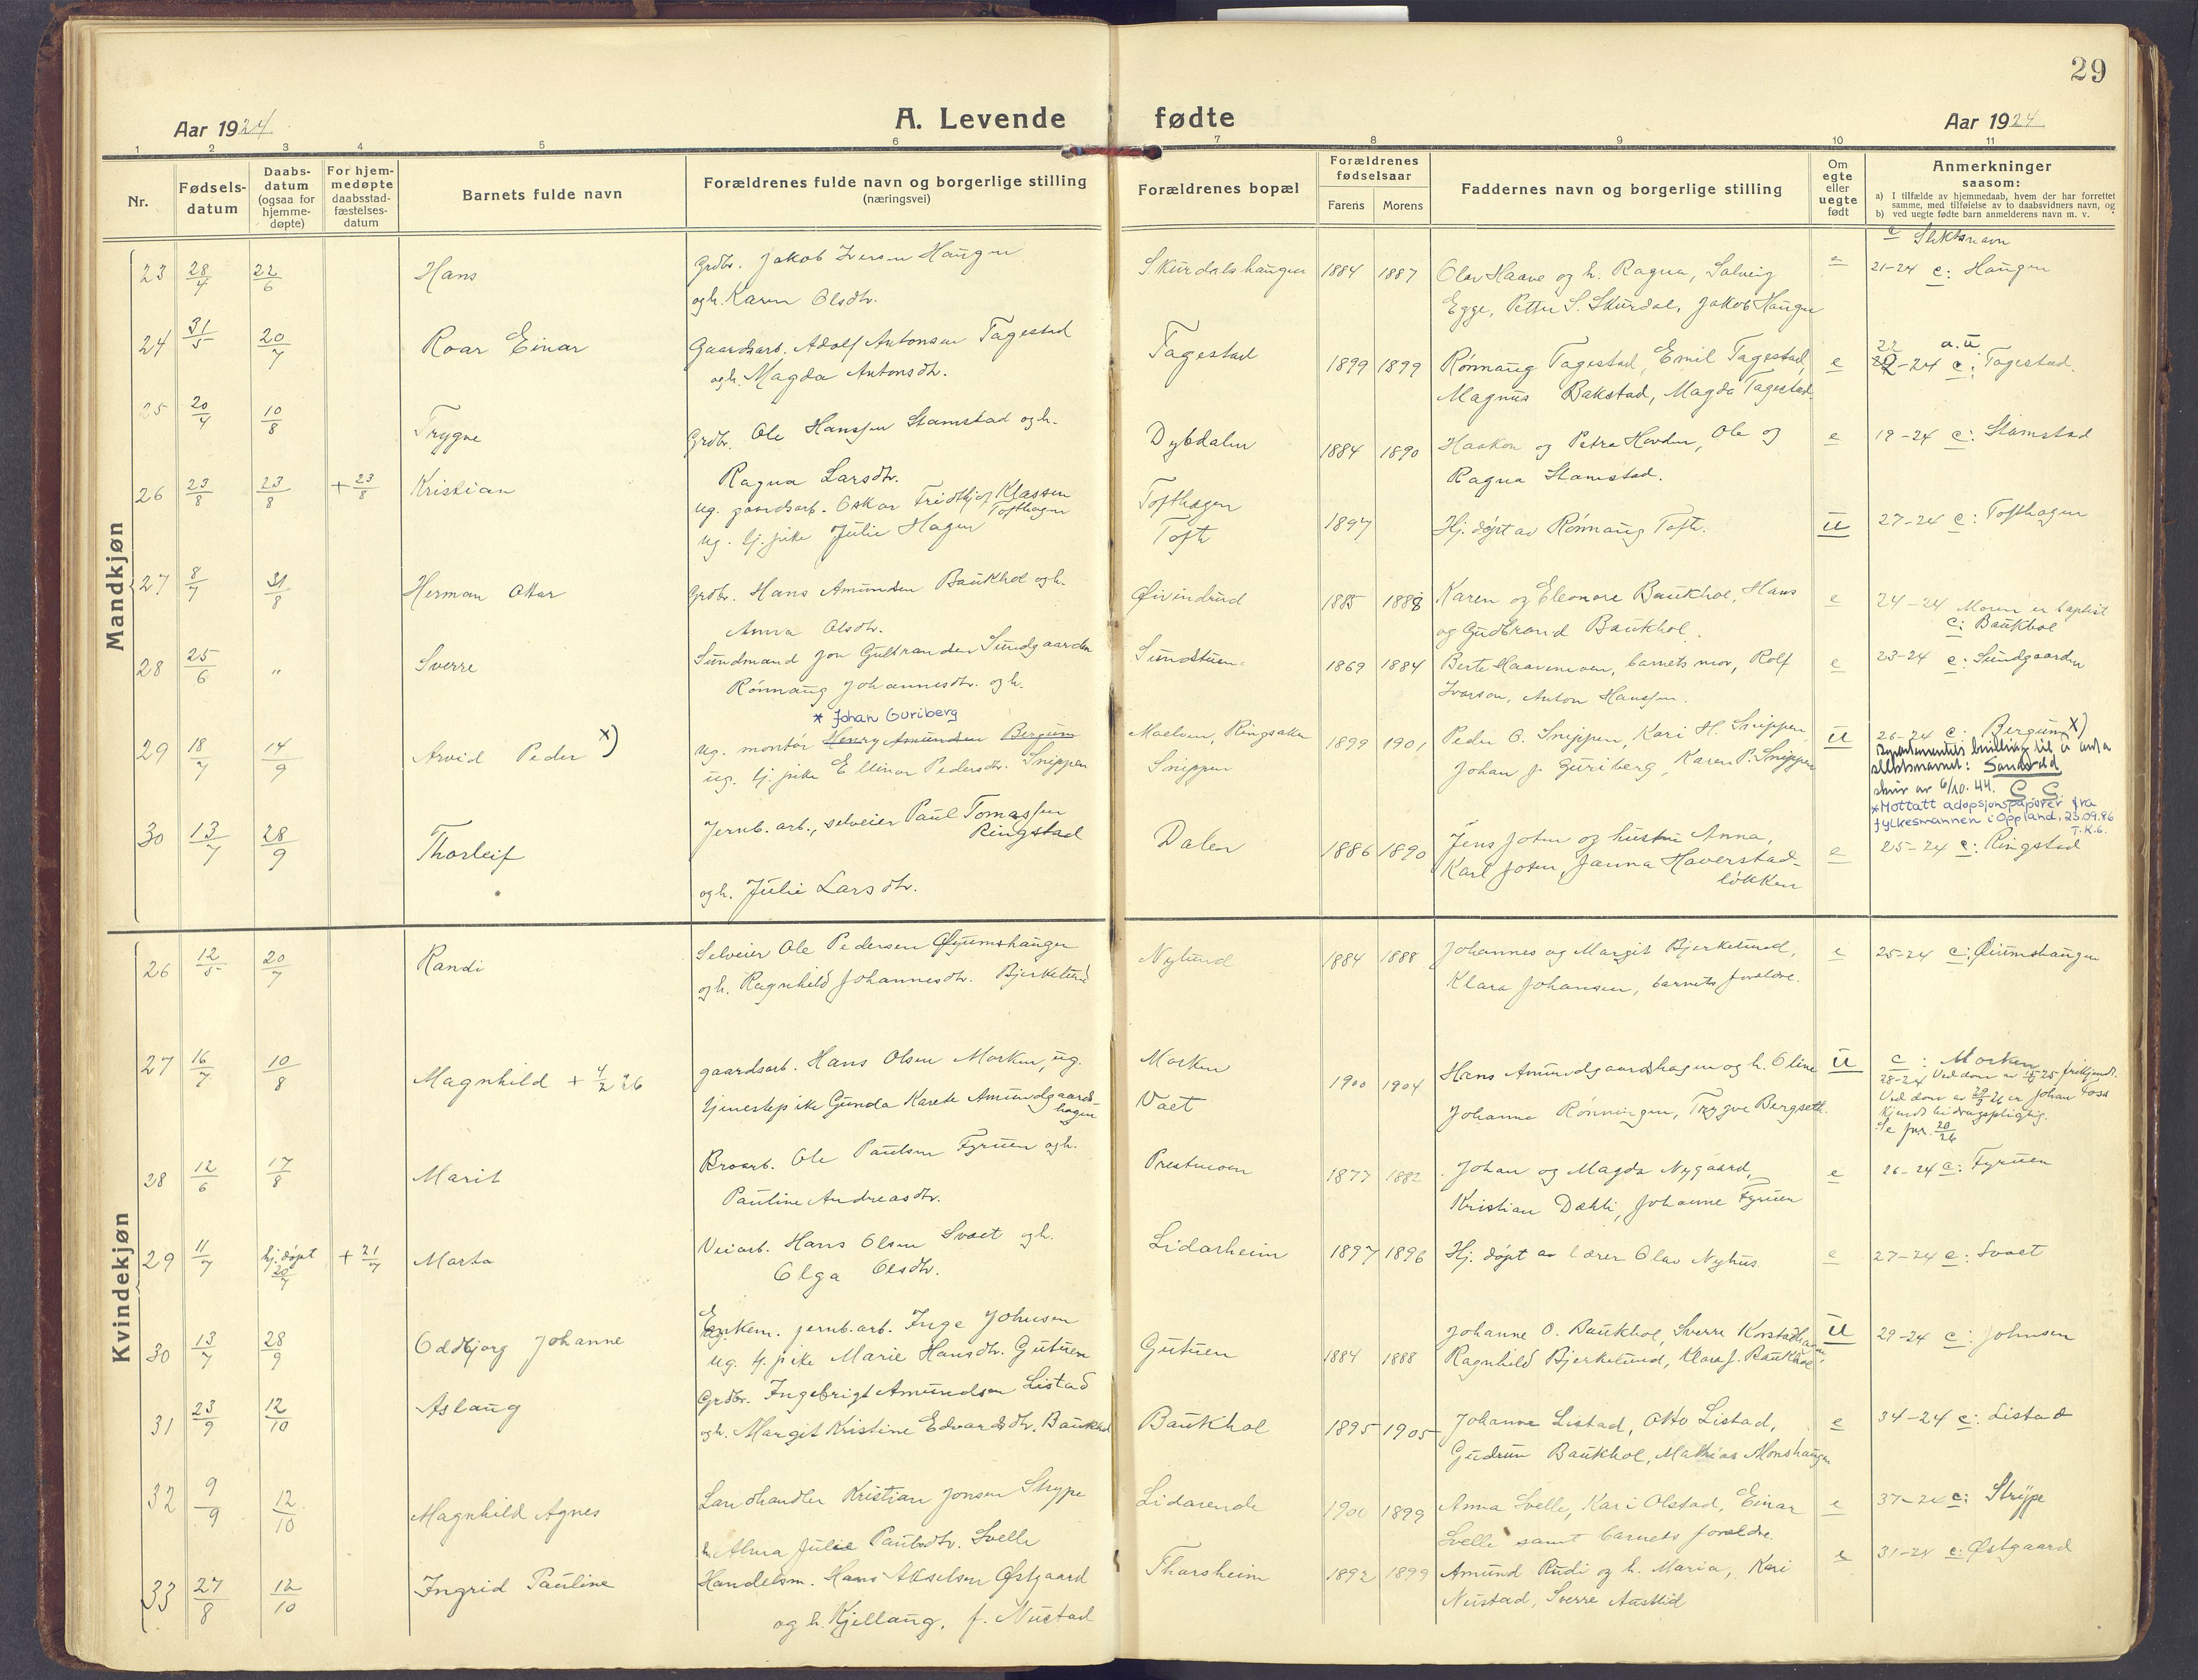 29
Aar 1924
A. Levende fødte
Aar 1924
1 2 3 4 5 6 7 8 9 10 11
Nr.
Fødsels-
datum
Daabs-
datum
(ogsaa for
hjemme-
døpte)
For hjem-
medøpte
daabsstad-
fæstelses-
datum
Barnets fulde navn
Forældrenes fulde navn og borgerlige stilling
(næringsvei)
Forældrenes bopæl
Forældrenes
fødselsaar
Farens Morens
Faddernes navn og borgerlige stilling
Om
egte
eller
uegte
født
Anmerkninger
saasom:
a) I tilfælde av hjemmedaab, hvem der har forrettet
samme, med tilføielse av to daabsvidners navn, og
b) ved uegte fødte barn anmelderens navn m. v.
Mandkjøn
c Slektsnavn
23 28/4 22/6 Hans Grdbr. Jakob Iversen Haugen Skurdalshaugen 1884 1887 Olav Haave og h. Ragna, Solveig e 21-24 c: Haugen
og h. Karen Olsdtr. Egge, Petter S. Skurdal, Jakob Haugen
24 31/5 20/7 Roar Einar Gaardsarb. Adolf Antonsen Tagestad Tagestad 1899 1899 Rønnaug Tagestad, Emil Tagestad, e 22 a.u
22-24 c: Tagestad.
og h. Magda Antonsdtr. Magnus Bakstad, Magda Tagestad.
25 20/4 10/8 Trygve Grdbr. Ole Hanssen Stamstad og h. Dybdalen 1884 1890 Haakon og Petra Hovden, Ole og e 19-24 c: Stamstad
Ragna Larsdtr. Ragna Stamstad.
26 23/8 23/8 + 23/8 Kristian ug. gaardsarb. Oskar Fridthjof Klassen Tofthagen Tofthagen
ug. tj.pike Julie Hagen Toft 1897 Hj. døpt av Rønnaug Toft. u 27-24 c: Tofthagen
27 8/7 31/8 Herman Ottar Grdbr. Hans Amundsen Baukhol og h. Øivindrud 1885 1888 Karen og Eleonore Baukhol, Hans e 24-24 Moren er baptist
Anna Olsdtr. og Gudbrand Baukhol. c: Baukhol
28 25/6 " Sverre Sundmand Jon Gulbrandsen Sundgaarden Sundstuen 1869 1884 Berte Haavemoen, barnets mor, Rolf e 23-24 c: Sundgaarden
Rønnaug Johannesdtr. og h. Ivarson, Anton Hanssen.
* Johan Guriberg
29 18/7 14/9 Arvid Peder x) ug. montør Henry Amundsen Bergum Moelven, Ringsaker 1899 1901 Peder O. Snippen, Kari H. Snippen u 26-24 c: Bergum x)
ug. tj.pike Ellinor Pedersdtr. Snippen Snippen Johan J. Guriberg, Karen P. Snippen
Departementets bevilling til å anta
slektsnavnet:
skriv av 6/10.44.
* Mottatt adopsjonspapirer fra
fylkesmannen i Oppland, 23.09.86
T.K.G.
30 13/7 28/9 Thorleif Jernb. arb., selveier Paul Tomassen Ringstad Dalen 1886 1890 Jens Joten og hustru Anna, e 25-24 c: Ringstad
og h. Julie Larsdtr. Karl Joten, Janna Haverstad-
løkken
Kvindekjøn
26 12/5 20/7 Randi Selveier Ole Pedersen Øyumshaugen Nylund 1884 1888 Johannes og Margit Bjerkelund, e 25-24 c: Øiumshaugen
og h. Ragnhild Johannesdtr. Bjerkelund Klara Johansen, barnets foreldre.
27 16/7 10/8 Magnhild + 4/2 26 gaardsarb. Hans Olsen Morken, ug. Morken 1900 1904 Hans Amundgaardshagen og h. Oline u c: Morken
tjenestepike Gunda Karete Amundgaards-
hagen Vaet Johanna Rønningen, Trygve Bergseth.
28-24 Ved dom av 25 frikjendt.
Ved dom av 26 er Johan Foss
kjendt bidragspligtig.
Se jnr. 20/26
28 12/6 17/8 Marit Broarb. Ole Paulsen Fyruen og h. Prestmoen 1877 1882 Johan og Magda Nygaard, e 26-24 c: Fyruen
Pauline Andreasdtr. Kristian Dæhli, Johanne Fyruen
29 11/7 hj.døpt 20/7 + 21/7 Marta Veiarb. Hans Olsen Svaet og h. Lidarheim 1897 1896 Hj. døpt av lærer Olav Nyhus e 27-24 c: Svaet
Olga Olsdtr.
30 13/7 28/9 Oddbjørg Johanne Enkem. jernb.arb. Inge Johnsen Gutuen 1884 1888 Johanne O. Baukhol, Sverre Korstadhagen, u 29-24 c: Johnsen
ug. tj.pike Marie Hansdtr. Gutuen Ragnhild Bjerkelund, Klara J. Baukhol
31 23/9 12/10 Aslaug Grdbr. Ingebrigt Amundsen Listad Baukhol 1895 1905 Johanna Listad, Otto Listad, e 34-24 c: Listad
og h. Margit Kristine Edvardsdtr. Baukhol Gudrun Baukhol, Mathias Monshaugen
32 9/9 12/10 Magnhild Agnes Landhandler Kristian Jonsen Strype Lidarende 1900 1899 Anna Svelle, Kari Olstad, Einar e 37-24 c: Strype
h. Alma Julie Paulsdtr. Svelle Svelle samt barnets foreldre.
33 27/8 12/10 Ingrid Pauline Handelsm. Hans Akselsen Østgaard Thorsheim 1892 1899 Amund Rudi og h. Maria, Kari e 31-24 c: Østgaard
og h. Kjellaug, f. Nustad Nustad, Sverre Austlid